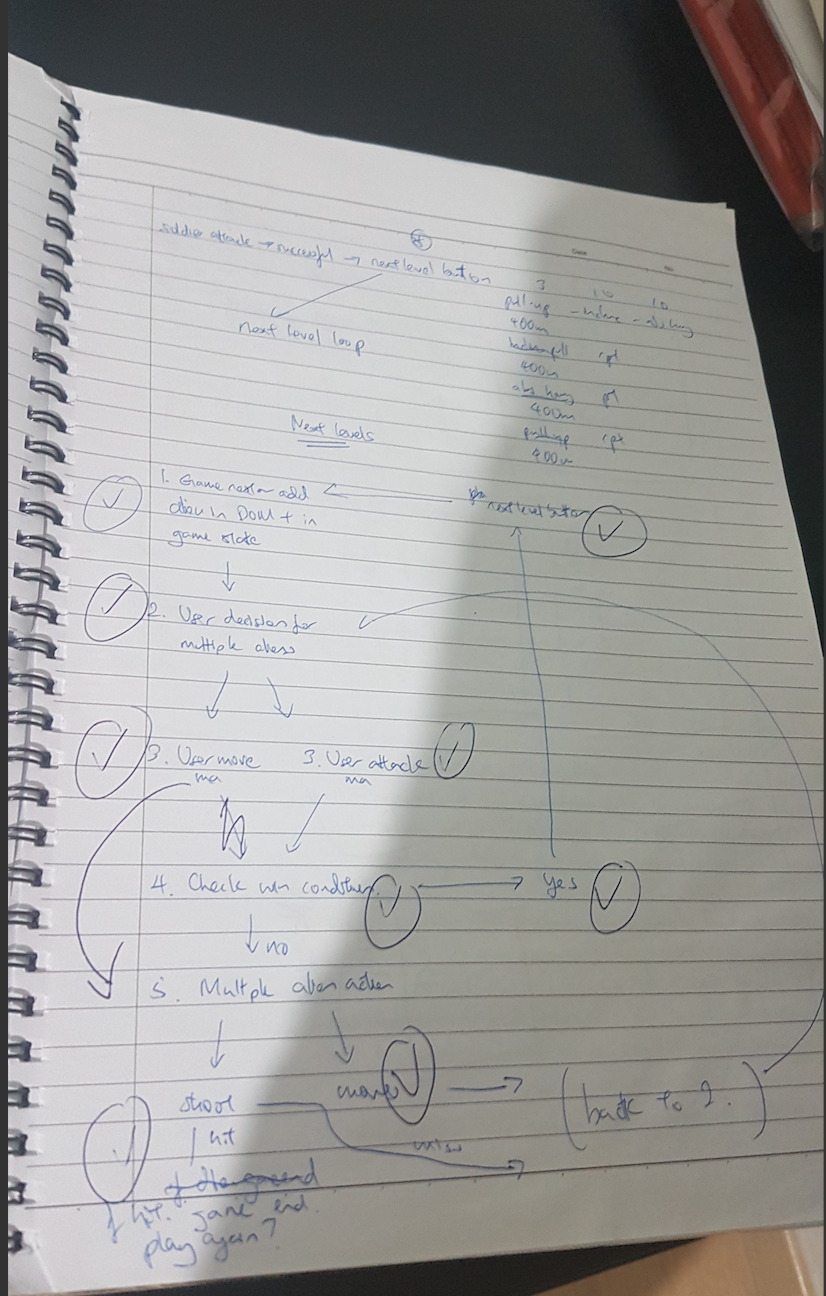 soldier attack → successful → next level button
next level loop
3 10 10
pull-up -
400m
400m
abs hang
400m
pullup rpt
400m
Next levels
1. Game restar add
alien in DOM + in
game state
next level button
2. User decision for
multiple aliens
3. User move
ma
3. User attack
ma
4. Check win condition
yes
no
5. Multple alien action
shoot
move
(back to 2.)
hit
miss
if hit. game end.
play again?